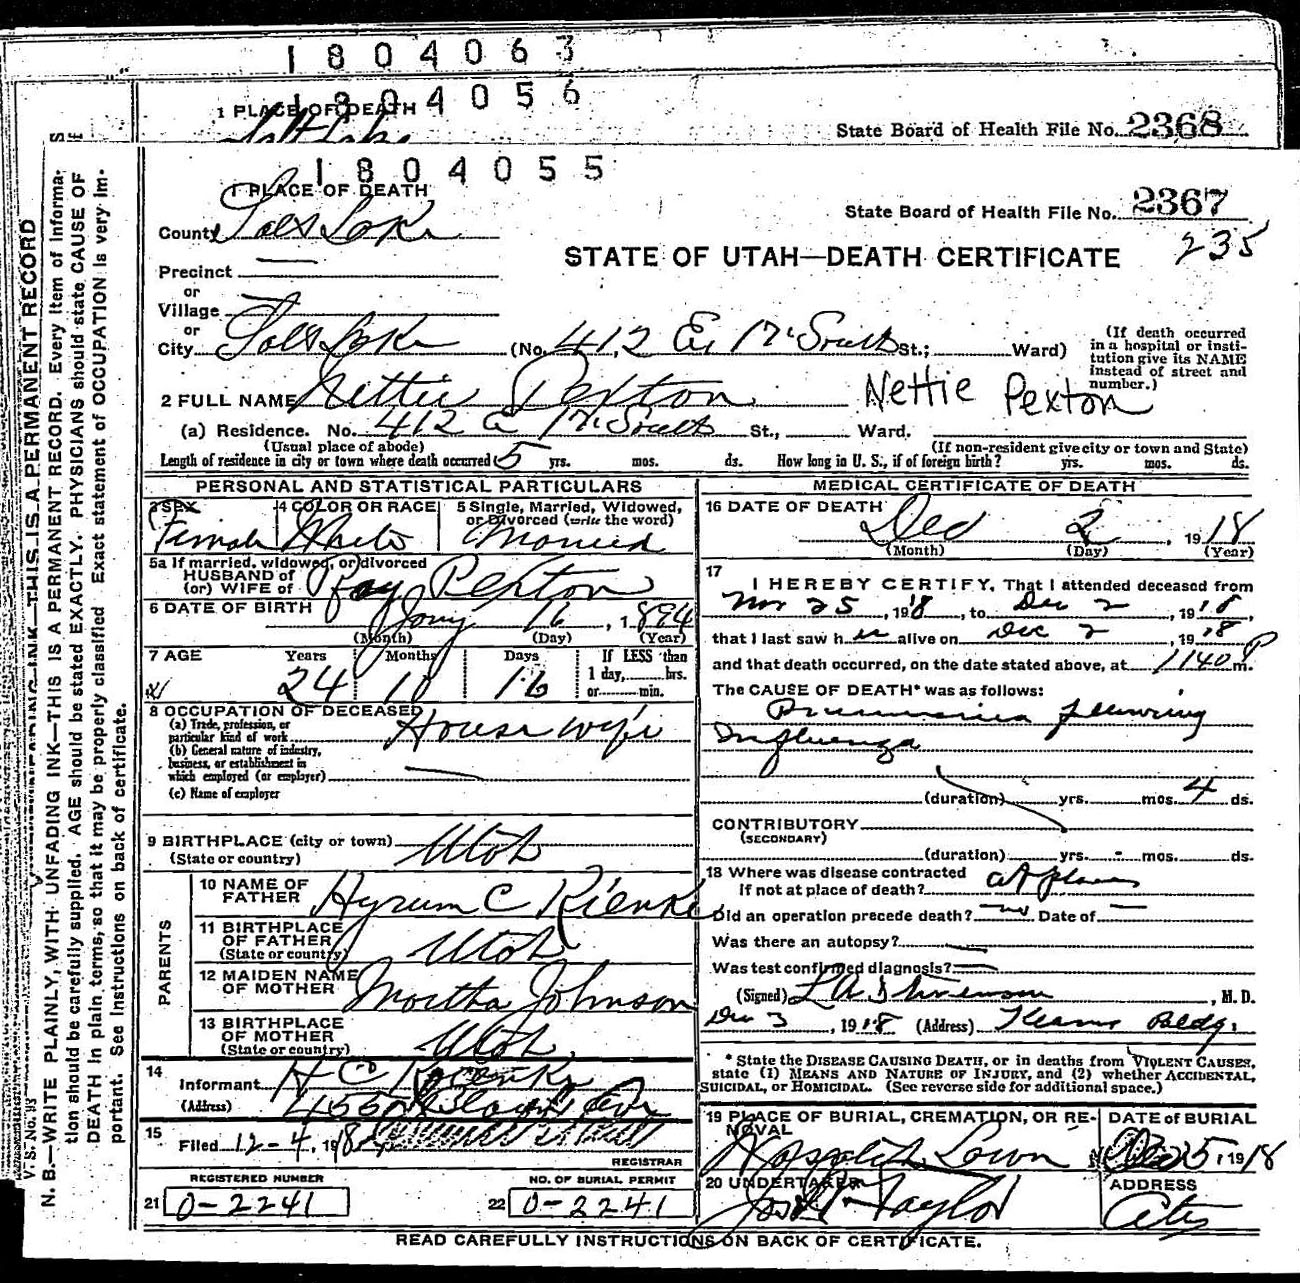 1804063
1804056
1 PLACE OF DEATH
Salt Lake
State Board of Health File No. 2368
1804055
1 PLACE OF DEATH
State Board of Health File No. 2367
County Salt Lake
235
STATE OF UTAH—DEATH CERTIFICATE
Precinct —
or
Village
or
City Salt Lake (No. 412 E. 17th South St.; Ward)
(If death occurred in a hospital or institution give its NAME instead of street and number.)
2 FULL NAME Nettie Pexton Nettie Pexton
(a) Residence. No. 412 E 17th South St., Ward.
(Usual place of abode) (If non-resident give city or town and State)
Length of residence in city or town where death occurred 5 yrs. mos. ds. How long in U. S., if of foreign birth? yrs. mos. ds.
PERSONAL AND STATISTICAL PARTICULARS
3 SEX Female
4 COLOR OR RACE White
5 Single, Married, Widowed, or Divorced (write the word) Married
5a If married, widowed, or divorced
HUSBAND of
(or) WIFE of Ray Pexton
6 DATE OF BIRTH Jany 16, 1894
(Month) (Day) (Year)
7 AGE Years Months Days If LESS than
24 10 16 1 day, hrs.
or min.
8 OCCUPATION OF DECEASED
(a) Trade, profession, or particular kind of work House wife
(b) General nature of industry, business, or establishment in which employed (or employer) —
(c) Name of employer
9 BIRTHPLACE (city or town)
(State or country) Utah
PARENTS
10 NAME OF FATHER Hyrum C Rienke
11 BIRTHPLACE OF FATHER
(State or country) Utah
12 MAIDEN NAME OF MOTHER Martha Johnson
13 BIRTHPLACE OF MOTHER
(State or country) Utah
14
Informant H C
(Address)
15
Filed 12-4, 1918
REGISTRAR
REGISTERED NUMBER
21 0-2241
NO. OF BURIAL PERMIT
22 0-2241
MEDICAL CERTIFICATE OF DEATH
16 DATE OF DEATH
Dec 2, 1918
(Month) (Day) (Year)
17
I HEREBY CERTIFY, That I attended deceased from
Nov 25, 1918, to Dec 2, 1918,
that I last saw her alive on Dec 2, 1918
and that death occurred, on the date stated above, at 1140 P m.
The CAUSE OF DEATH* was as follows:
Pneumonia following
Influenza
(duration) yrs. mos. 4 ds.
CONTRIBUTORY
(SECONDARY)
(duration) yrs. - mos. ds.
18 Where was disease contracted
if not at place of death? at place
Did an operation precede death? no Date of —
Was there an autopsy? —
Was test confirmed diagnosis? —
(Signed) L A Stevenson, M. D.
Dec 3, 1918 (Address) Kearns Bldg.
* State the DISEASE CAUSING DEATH, or in deaths from VIOLENT CAUSES,
state (1) MEANS AND NATURE OF INJURY, and (2) whether ACCIDENTAL,
SUICIDAL, or HOMICIDAL. (See reverse side for additional space.)
19 PLACE OF BURIAL, CREMATION, OR REMOVAL
Lawn
DATE of BURIAL
Dec 5, 1918
20 UNDERTAKER
Taylor
ADDRESS
City
READ CAREFULLY INSTRUCTIONS ON BACK OF CERTIFICATE.
V. S. No. 93
N. B.—WRITE PLAINLY, WITH UNFADING INK—THIS IS A PERMANENT RECORD. Every item of information should be carefully supplied. AGE should be stated EXACTLY. PHYSICIANS should state CAUSE OF DEATH in plain terms, so that it may be properly classified. Exact statement of OCCUPATION is very important. See instructions on back of certificate.
THIS IS A PERMANENT RECORD